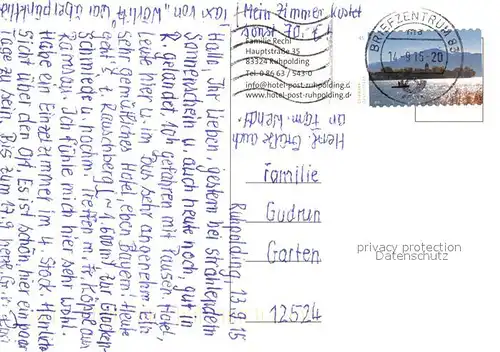 Ruhpolding, 13.9.15
Hallo, Ihr Lieben, gestern bei strahlendem
Sonnenschein u. auch heute noch, gut in
R. gelandet. Ich gefahren mit Pausen. Hotel,
Leute hier u. im Bus sehr angenehm. Ein
sehr gemütliches Hotel, eben Bayern! Heute
geht's z. Rauschberg (~1600m) zur Glocken-
schmiede u. nochm. Treffen m. Fr. Köppl aus
Ramsau. Ich fühle mich hier sehr wohl.
Habe ein Einzelzimmer im 4. Stock. Herrliche
Sicht über den Ort. Es ist schön, hier ein paar
Tage zu sein. Bis zum 17.9. herzl. Gr.
Taxi von "Wörlitz" war überpünktlich
! Mein Zimmer kostet
sonst 70,- €!
Familie Rechl
Hauptstraße 35
83324 Ruhpolding
Tel. 0 86 63 / 543-0
info@hotel-post-ruhpolding.de
www.hotel-post-ruhpolding.de
Herzl. Grüße auch
an
BRIEFZENTRUM 83
ma
14.-9.15-20
Familie
Gudrun
Garten
12524
privacy protection
Datenschutz